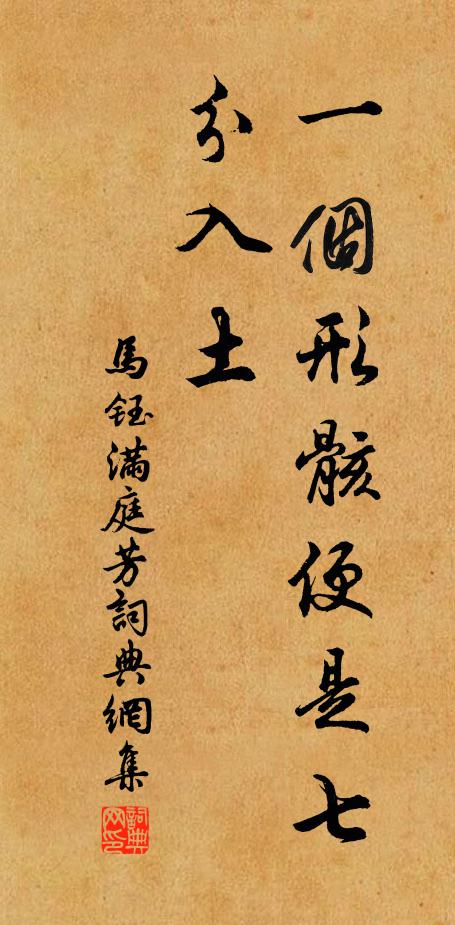 一個形骸便是七
分入土
馬鈺滿庭芳詞典網集
詞典网印